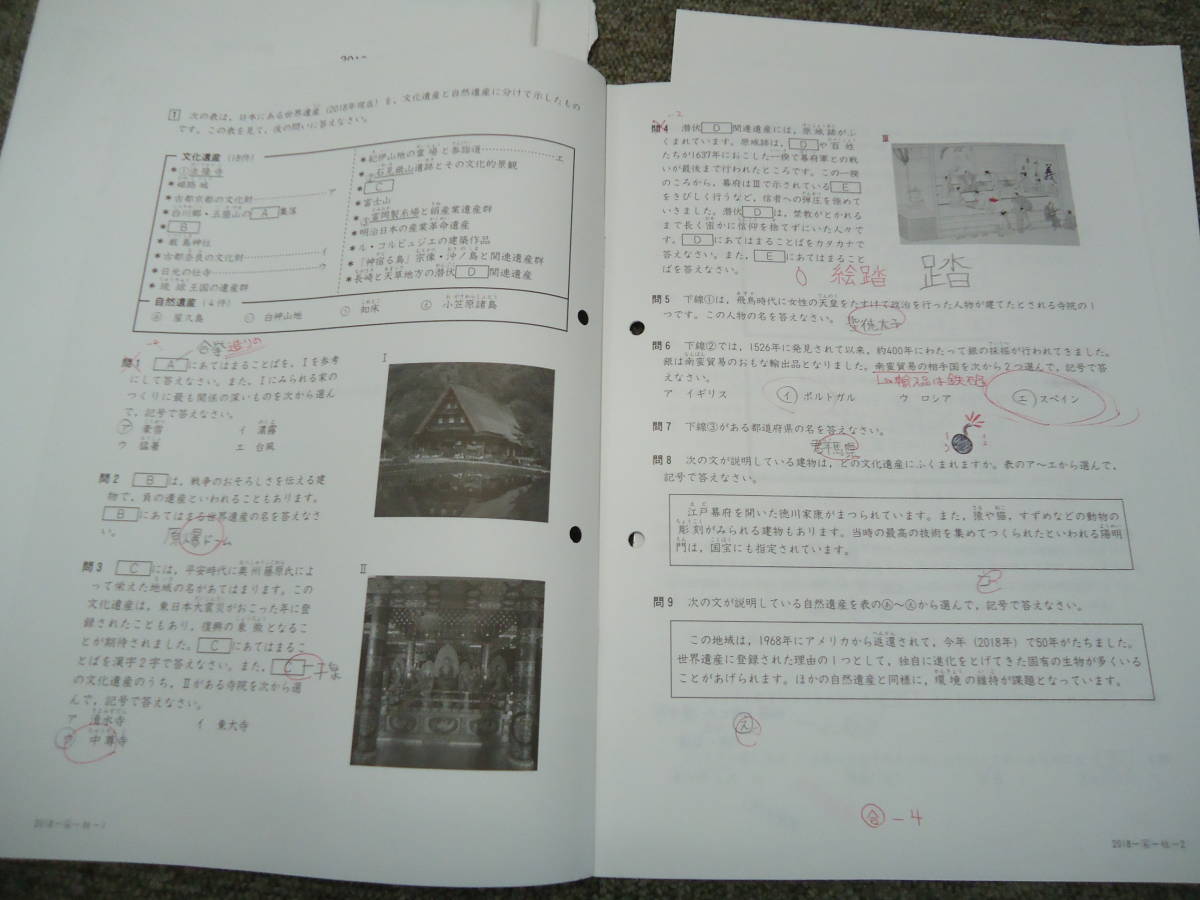 1 次の表は，日本にある世界遺産（2018年現在）を，文化遺産と自然遺産に分けて示したもの
です。この表を見て，後の問いに答えなさい。
文化遺産（18件）
●①法隆寺
●姫路城
●古都京都の文化財……ア
●白川郷・五箇山の A 集落
● B
●厳島神社
●古都奈良の文化財……イ
●日光の社寺……ウ
●琉球王国の遺産群
●紀伊山地の霊場と参詣道……エ
●②石見銀山遺跡とその文化的景観
● C
●富士山
●③富岡製糸場と絹産業遺産群
●明治日本の産業革命遺産
●ル・コルビュジエの建築作品
●「神宿る島」宗像・沖ノ島と関連遺産群
●長崎と天草地方の潜伏 D 関連遺産
自然遺産（4件）
あ 屋久島 い 白神山地 う 知床 え 小笠原諸島
-2 合掌造りの
問1 A にあてはまることばを，Ⅰを参考
にして答えなさい。また，Ⅰにみられる家の
つくりに最も関係の深いものを次から選ん
で，記号で答えなさい。
ア 豪雪 イ 濃霧
ウ 猛暑 エ 台風
Ⅰ
問2 B は，戦争のおそろしさを伝える建
物で，負の遺産といわれることもあります。
B にあてはまる世界遺産の名を答えなさ
い。
原爆ドーム
問3 C には，平安時代に奥州藤原氏によ
って栄えた地域の名があてはまります。この
文化遺産は，東日本大震災がおこった年に登
録されたこともあり，復興の象徴となるこ
とが期待されました。 C にあてはまるこ
とばを漢字2字で答えなさい。また， C
の文化遺産のうち，Ⅱがある寺院を次から選
んで，記号で答えなさい。
ア 清水寺 イ 東大寺
ウ 中尊寺
Ⅱ
2018-
-2
問4 潜伏 D 関連遺産には，原城跡がふ
くまれています。原城跡は， D や百姓
たちが1637年におこした一揆で幕府軍との戦
いが最後まで行われたところです。この一揆
のころから，幕府はⅢで示されている E
をきびしく行うなど，信者への弾圧を強めて
いきました。潜伏 D は，禁教がとかれる
まで長く密かに信仰を捨てずにいた人々で
す。 D にあてはまることばをカタカナで
答えなさい。また， E にあてはまること
ばを答えなさい。
Ⅲ
絵踏 踏
問5 下線①は，飛鳥時代に女性の天皇をたすけて政治を行った人物が建てたとされる寺院の1
つです。この人物の名を答えなさい。 聖徳太子
問6 下線②では，1526年に発見されて以来，約400年にわたって銀の採掘が行われてきました。
銀は南蛮貿易のおもな輸出品となりました。南蛮貿易の相手国を次から2つ選んで，記号で答
えなさい。 輸入品は鉄砲
ア イギリス イ ポルトガル ウ ロシア エ スペイン
問7 下線③がある都道府県の名を答えなさい。
群馬県
問8 次の文が説明している建物は，どの文化遺産にふくまれますか。表のア～エから選んで，
記号で答えなさい。
江戸幕府を開いた徳川家康がまつられています。また，猿や猫，すずめなどの動物の
彫刻がみられる建物もあります。当時の最高の技術を集めてつくられたといわれる陽明
門は，国宝にも指定されています。
ウ
問9 次の文が説明している自然遺産を表のあ～えから選んで，記号で答えなさい。
この地域は，1968年にアメリカから返還されて，今年（2018年）で50年がたちました。
世界遺産に登録された理由の1つとして，独自に進化をとげてきた固有の生物が多くいる
ことがあげられます。ほかの自然遺産と同様に，環境の維持が課題となっています。
え
合 -4
2018-